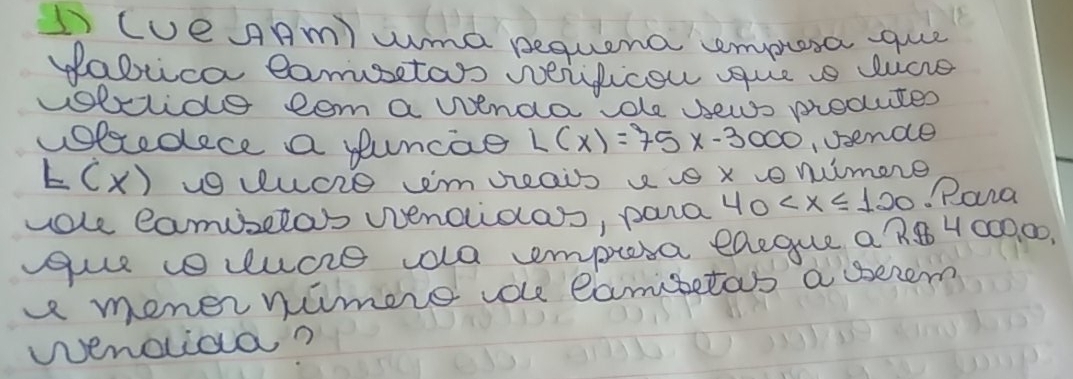 1) (UEAAM) uma pequena empresa que
fabrica camisetas verificou que o lucro
obtido com a venda de seus produtos
obedece a função L(x)=75x-3000, sendo
L(x) o lucro em reais e o x o número
de camisetas vendidas, para 40<x≤120. Para
que o lucro da empresa chegue a R$ 4000,00,
e menor número de camisetas a serem
vendida?